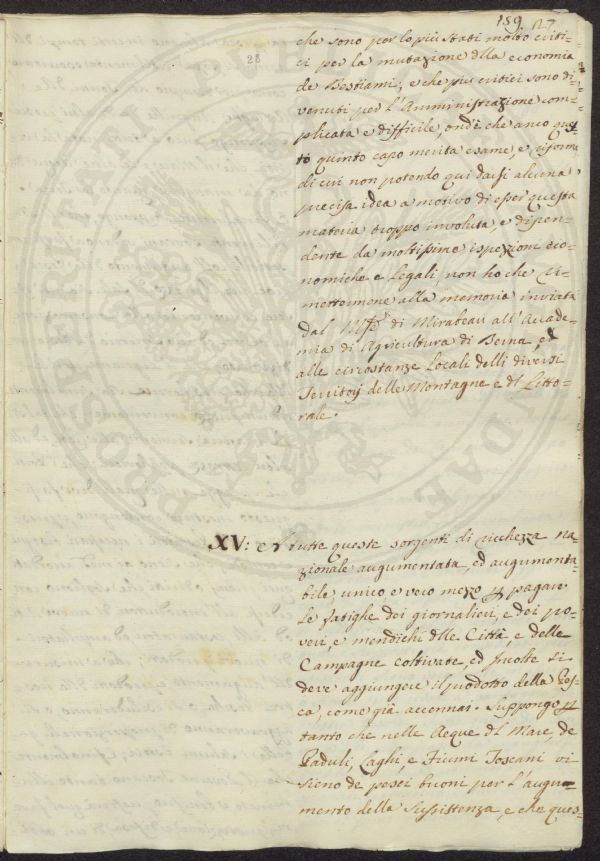 159. 27
28
che sono per lo più stati molto criti-
ci per la mutazione dlla economia
de Bestiami, e che più critici sono di-
venuti per l'Amministrazione com-
plicata e difficile, ond'è che anco ques-
to quinto capo merita esame, e riforma
di cui non potendo qui darsi alcuna
precisa idea a motivo di esser questa
materia troppo involuta, e dipen-
dente da moltissime ispezzione eco-
nomiche e Legali, non ho che ri-
mettermene alla memoria inviata
dal di Mirabeau all'Accade-
mia di Agricultura di Berna, ed
alle circostanze Locali delli diversi
Territorj delle Montagne e dl Litto-
rale.
XV: A tutte queste sorgenti di ricchezza na-
zionale augumentata, ed augumenta-
bile unico e vero mezzo p pagare
Le fatighe dei giornalieri, e dei po-
veri, e mendichi dlle Città, e delle
Campagne coltivate, ed Incolte si
deve aggiungere il prodotto della Pes-
ca, come già accennai. Suppongo p
tanto che nelle Acque dl Mare, de
Paduli, Laghi, e Fiumi Toscani vi
sieno de pesci buoni per l'augu-
mento della Sussistenza, e che ques-